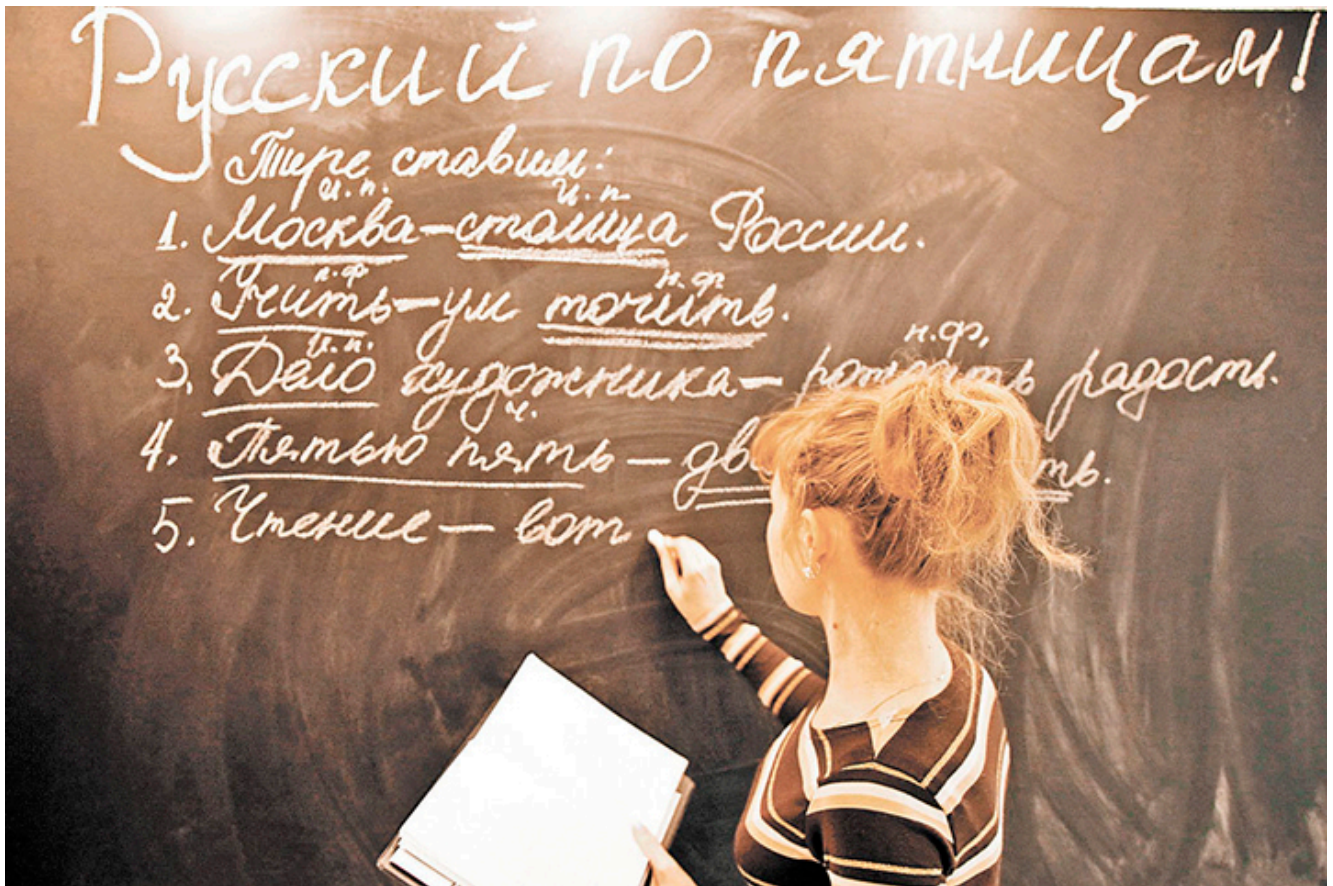 Русский по пятницам!
Тире ставим:
и.п. и.п.
1. Москва – столица России.
н.ф н.ф.
2. Учить – ум точить.
и.п. н.ф,
3. Дело художника – рождать радость.
ч.
4. Пятью пять – ь.
5. Чтение – вот